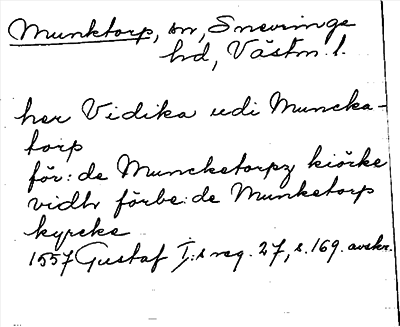 Munktorp, sn, Snevringe
hd, Västm. l.
her Vidika udi Muncka-
torp
för: de Muncketorpz kiörke
vidtr förbe: de Munketorp
kyrcke
1557 Gustaf I:s reg. 27, s. 169. avskr.